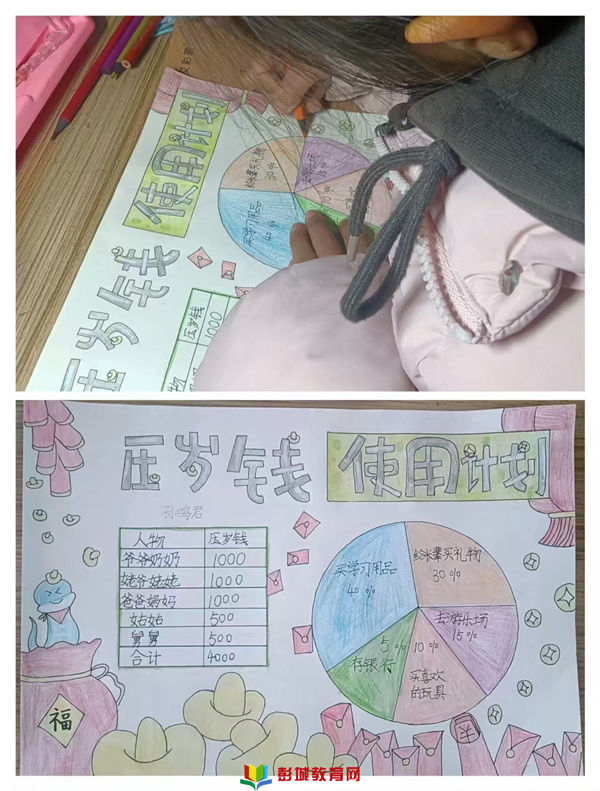 使用计划
压岁钱
买学习用品
40%
10%
压岁钱
1000
人物
压岁钱 使用计划
孙鸣君
人物 压岁钱
爷爷奶奶 1000
姥爷姥姥 1000
爸爸妈妈 1000
姑姑 500
舅舅 500
合计 4000
买学习用品
40%
买礼物
30%
去游乐场
15%
5%
存银行
10%
买喜欢
的玩具
福
彭城教育网